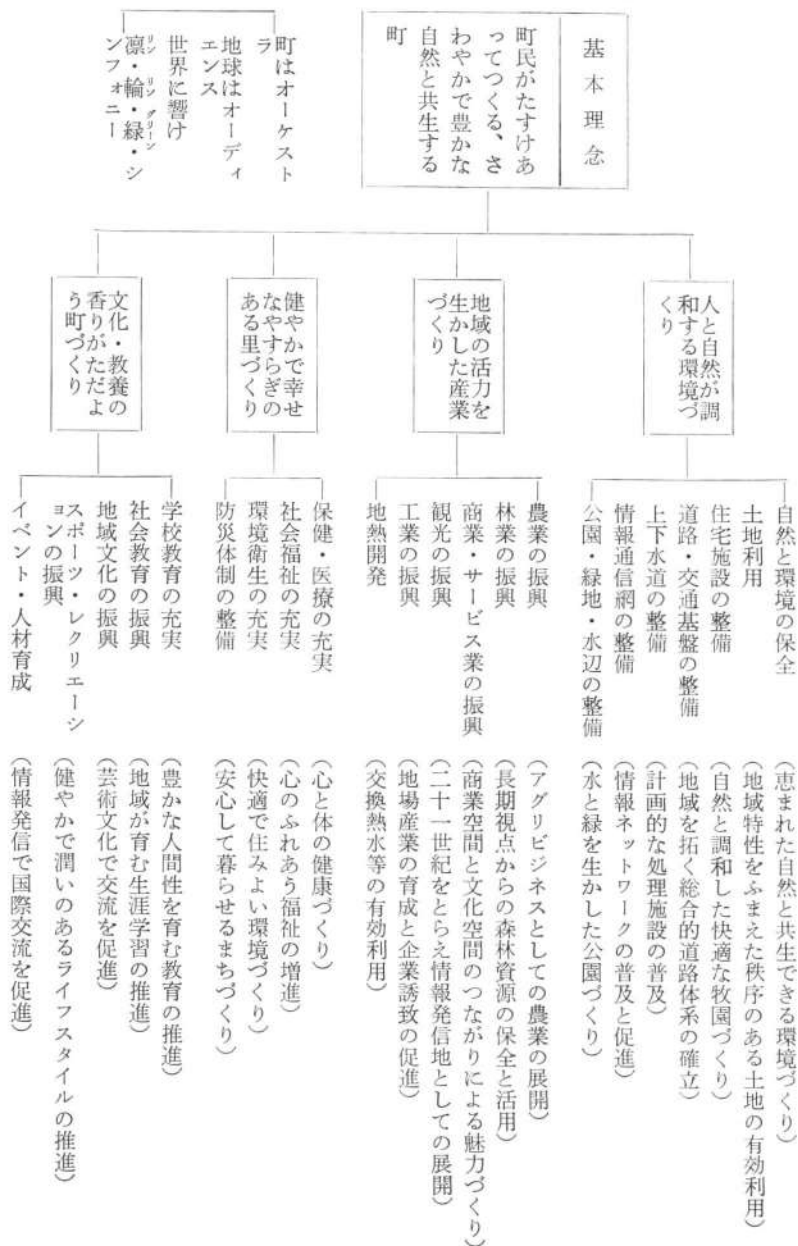 基本理念
町民がたすけあ
ってつくる、さ
わやかで豊かな
自然と共生する
町
町はオーケスト
ラ
地球はオーディ
エンス
世界に響け
凛・輪・緑・シ
リン リン グリーン
ンフォニー
人と自然が調
和する環境づ
くり
自然と環境の保全
(恵まれた自然と共生できる環境づくり)
土地利用
(地域特性をふまえた秩序のある土地の有効利用)
住宅施設の整備
(自然と調和した快適な牧園づくり)
道路・交通基盤の整備
(地域を拓く総合的道路体系の確立)
上下水道の整備
(計画的な処理施設の普及)
情報通信網の整備
(情報ネットワークの普及と促進)
公園・緑地・水辺の整備
(水と緑を生かした公園づくり)
地域の活力を
生かした産業
づくり
農業の振興
(アグリビジネスとしての農業の展開)
林業の振興
(長期視点からの森林資源の保全と活用)
商業・サービス業の振興
(商業空間と文化空間のつながりによる魅力づくり)
観光の振興
(二十一世紀をとらえ情報発信地としての展開)
工業の振興
(地場産業の育成と企業誘致の促進)
地熱開発
(交換熱水等の有効利用)
健やかで幸せ
なやすらぎの
ある里づくり
保健・医療の充実
(心と体の健康づくり)
社会福祉の充実
(心のふれあう福祉の増進)
環境衛生の充実
(快適で住みよい環境づくり)
防災体制の整備
(安心して暮らせるまちづくり)
文化・教養の
香りがただよ
う町づくり
学校教育の充実
(豊かな人間性を育む教育の推進)
社会教育の振興
(地域が育む生涯学習の推進)
地域文化の振興
(芸術文化で交流を促進)
スポーツ・レクリエーシ
ョンの振興
(健やかで潤いのあるライフスタイルの推進)
イベント・人材育成
(情報発信で国際交流を促進)